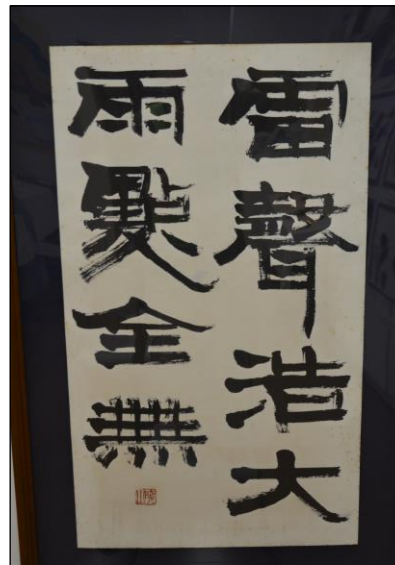 雷聲浩大
雨點全無